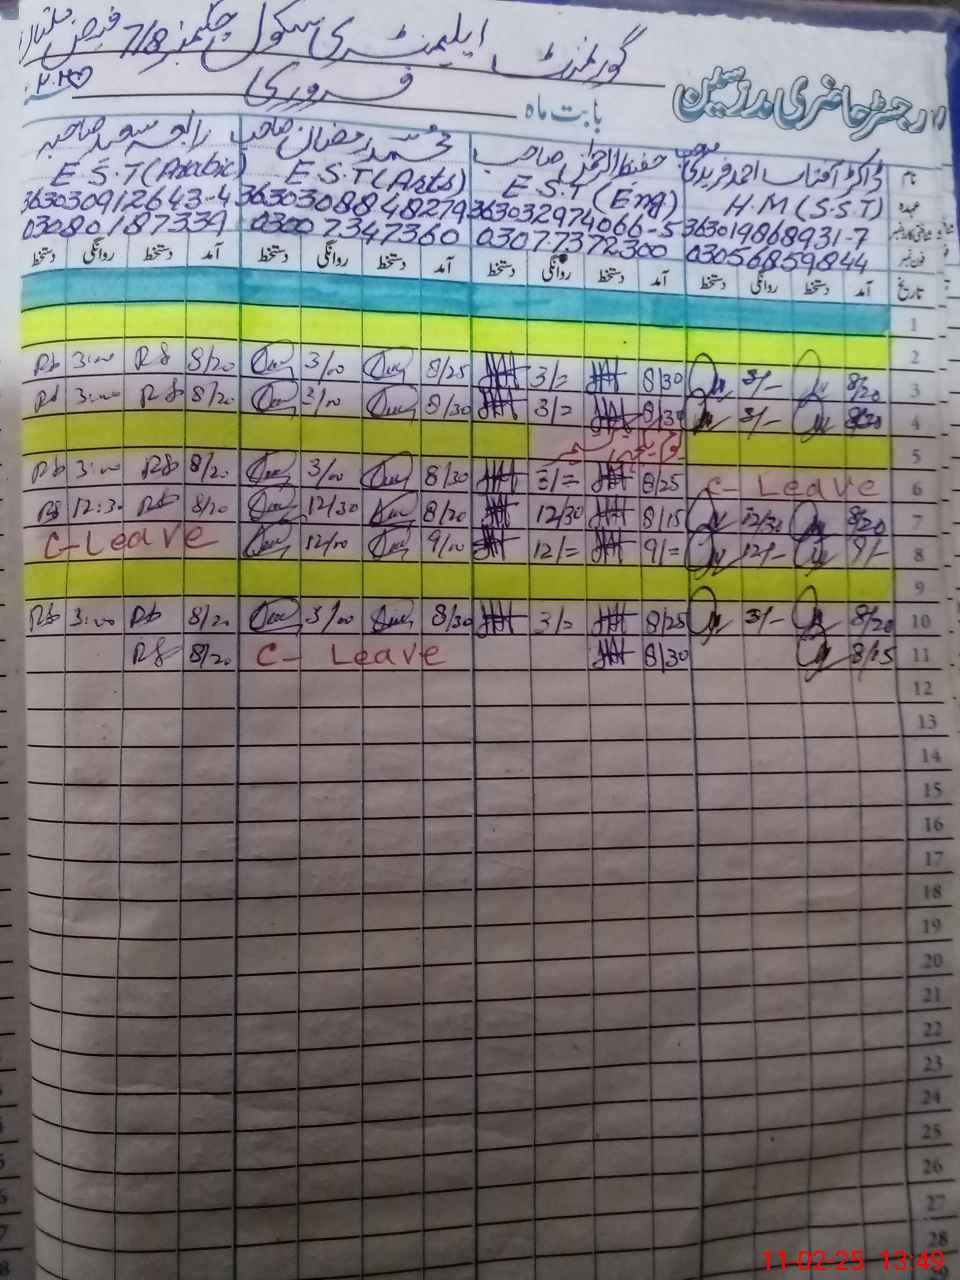 گورنمنٹ ایلیمنٹری سکول چکنمبر 7/8 فیض
رجسٹر حاضری مدرسین
بابت ماہ فروری
نام ڈاکٹر آفتاب احمد فریدی صاحب حفیظ الرحمٰن صاحب محمد رمضان صاحب رابعہ سعید صاحبہ
عہدہ H.M(S.S.T) E.S.T (Eng) E.S.T(Arts) E.S.T(Arabic)
363019868931-7 363032974066-5 3630308848279 363030912643-4
03056859844 03077372300 03007347360 03080187339
تاریخ آمد دستخط روانگی دستخط آمد دستخط روانگی دستخط آمد دستخط روانگی دستخط آمد دستخط روانگی دستخط
1
2
3 8/20 3/- 8/30 3/= 8/25 3/00 8/20 Rb 3:00 Rb
4 8/20 3/- 8/30 3/= 8/30 3/00 8/20 Rb 3:00 Rb
5
6 C-Leave 8/25 3/= 8/30 3/00 8/20 Rb 3:00 Rb
7 8/20 12/30 8/15 12/30 8/20 12/30 8/20 Rb 12:30 Rb
8 9/- 12/- 9/= 12/= 9/00 12/00 C-Leave
9
10 8/20 3/- 8/25 3/= 8/30 3/00 8/20 Rb 3:00 Rb
11 8/15 8/30 C- Leave 8/20 Rb
12
13
14
15
16
17
18
19
20
21
22
23
24
25
26
27
28
11-02-25 13:49